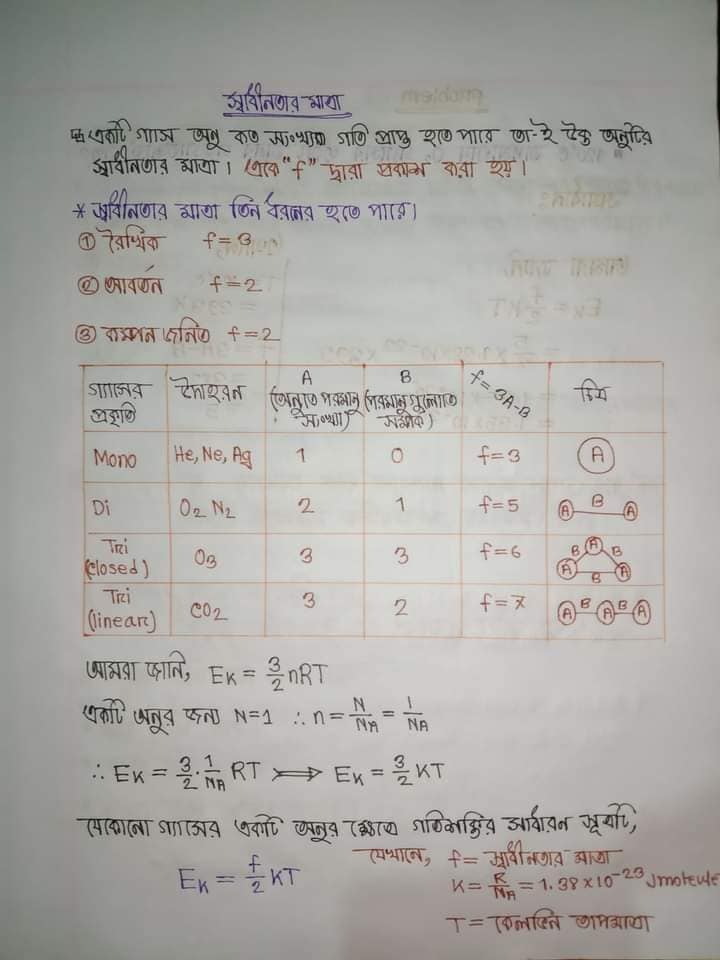 স্বাধীনতার মাত্রা
একটি গ্যাস অনু কত সংখ্যক গতি প্রাপ্ত হতে পারে তা-ই উক্ত অনুটির
স্বাধীনতার মাত্রা। একে "f" দ্বারা প্রকাশ করা হয়।
* স্বাধীনতার মাত্রা তিন ধরনের হতে পারে।
① রৈখিক f = 3
② আবর্তন f = 2
③ কম্পন জনিত f = 2
গ্যাসের প্রকৃতি উদাহরন A (অনুতে পরমানু সংখ্যা) B (পরমানুগুলোতে সম্পর্ক) f = 3A-B চিত্র
Mono He, Ne, Ag 1 0 f=3 A
Di O₂ N₂ 2 1 f=5 A B A
Tri (closed) O₃ 3 3 f=6 A B B A B A
Tri (linear) CO₂ 3 2 f=7 A B A B A
আমরা জানি, Eₖ = 3/2 nRT
একটি অনুর জন্য N=1 ∴ n = N/NA = 1/NA
∴ Eₖ = 3/2 · 1/NA RT ⟹ Eₖ = 3/2 KT
যেকোনো গ্যাসের একটি অনুর ক্ষেত্রে গতিশক্তির সাধারন সূত্রটি,
Eₖ = f/2 KT
যেখানে, f = স্বাধীনতার মাত্রা
K = R/NA = 1.38 × 10⁻²³ Jmolecule
T = কেলভিন তাপমাত্রা